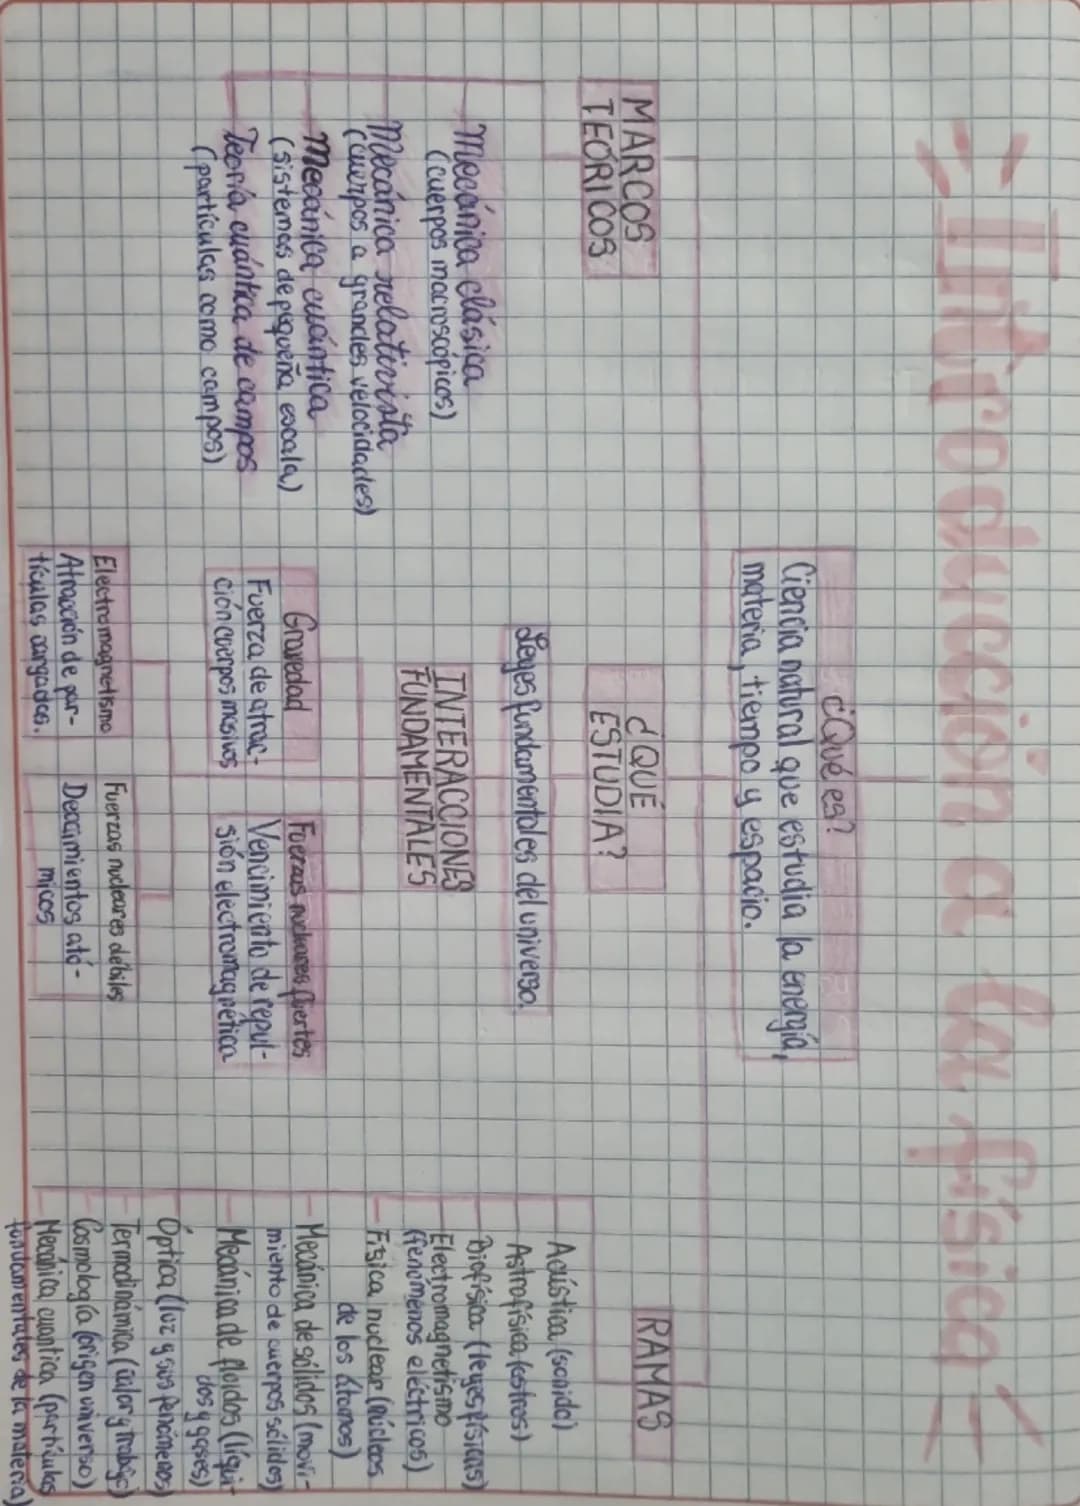 Introducción a la física
¿Qué es?
Ciencia natural que estudia la energía,
materia, tiempo y espacio.
MARCOS
TEÓRICOS
Mecánica clásica
(cuerpos macroscópicos)
Mecánica relativista
(cuerpos a grandes velocidades)
Mecánica cuántica
(sistemas de pequeña escala)
Teoría cuántica de campos
(partículas como campos)
¿QUÉ
ESTUDIA?
Leyes fundamentales del universo.
INTERACCIONES
FUNDAMENTALES
Gravedad
Fuerza de atrac-
ción cuerpos masivos
Fuerzas nucleares fuertes
Vencimiento de repul-
sión electromagnética
Electromagnetismo
Atracción de par-
tículas cargadas.
Fuerzas nucleares débiles
Decaimientos ató-
micos
RAMAS
Acústica (sonido)
Astrofísica (astros)
Biofísica (leyes físicas)
Electromagnetismo
(fenómenos eléctricos)
Física nuclear (núcleos
de los átomos)
Mecánica de sólidos (movi-
miento de cuerpos sólidos)
Mecánica de fluidos (líqui-
dos y gases)
Óptica (luz y sus fenómenos)
Termodinámica (calor y trabajo)
Cosmología (origen universo)
Mecánica cuantica (partículas
fundamentales de la materia)